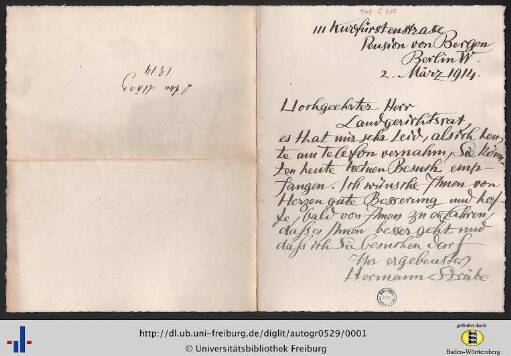 111 Kurfürstenstraße
Pension von Bergen
Berlin W.
2. März 1914.
Hochgeehrter Herr
Landgerichtsrat,
es that mir sehr leid, als ich heu-
te am Telefon vernahm, Sie könn-
ten heute keinen Besuch emp-
fangen. Ich wünsche Ihnen von
Herzen gute Besserung und hof-
fe, bald von Ihnen zu erfahren,
daß es Ihnen besser geht und
daß ich Sie besuchen darf
Ihr ergebenster
Hermann
2
März
1914
http://dl.ub.uni-freiburg.de/diglit/autogr0529/0001
© Universitätsbibliothek Freiburg
gefördert durch
Baden-Württemberg